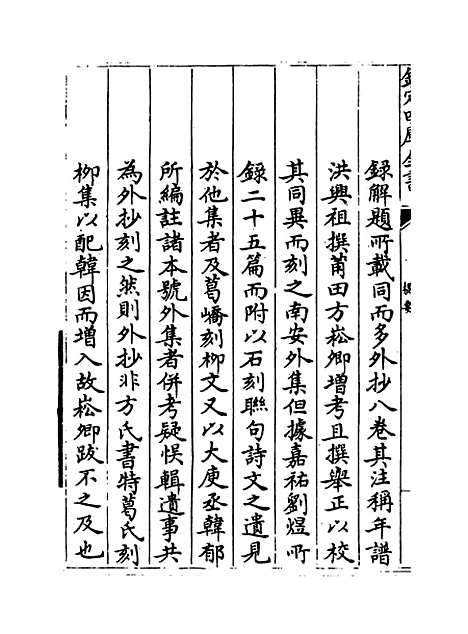 欽定四庫全書
提要
録解題所載同而多外抄八卷其注稱年譜
洪興祖撰莆田方崧卿增考且撰舉正以校
其同異而刻之南安外集但據嘉祐劉煜所
録二十五篇而附以石刻聯句詩文之遺見
於他集者及葛嶠刻柳文又以大庾丞韓郁
所編註諸本號外集者併考疑悞輯遺事共
為外抄刻之然則外抄非方氏書特葛氏刻
柳集以配韓因而增入故崧卿跋不之及也